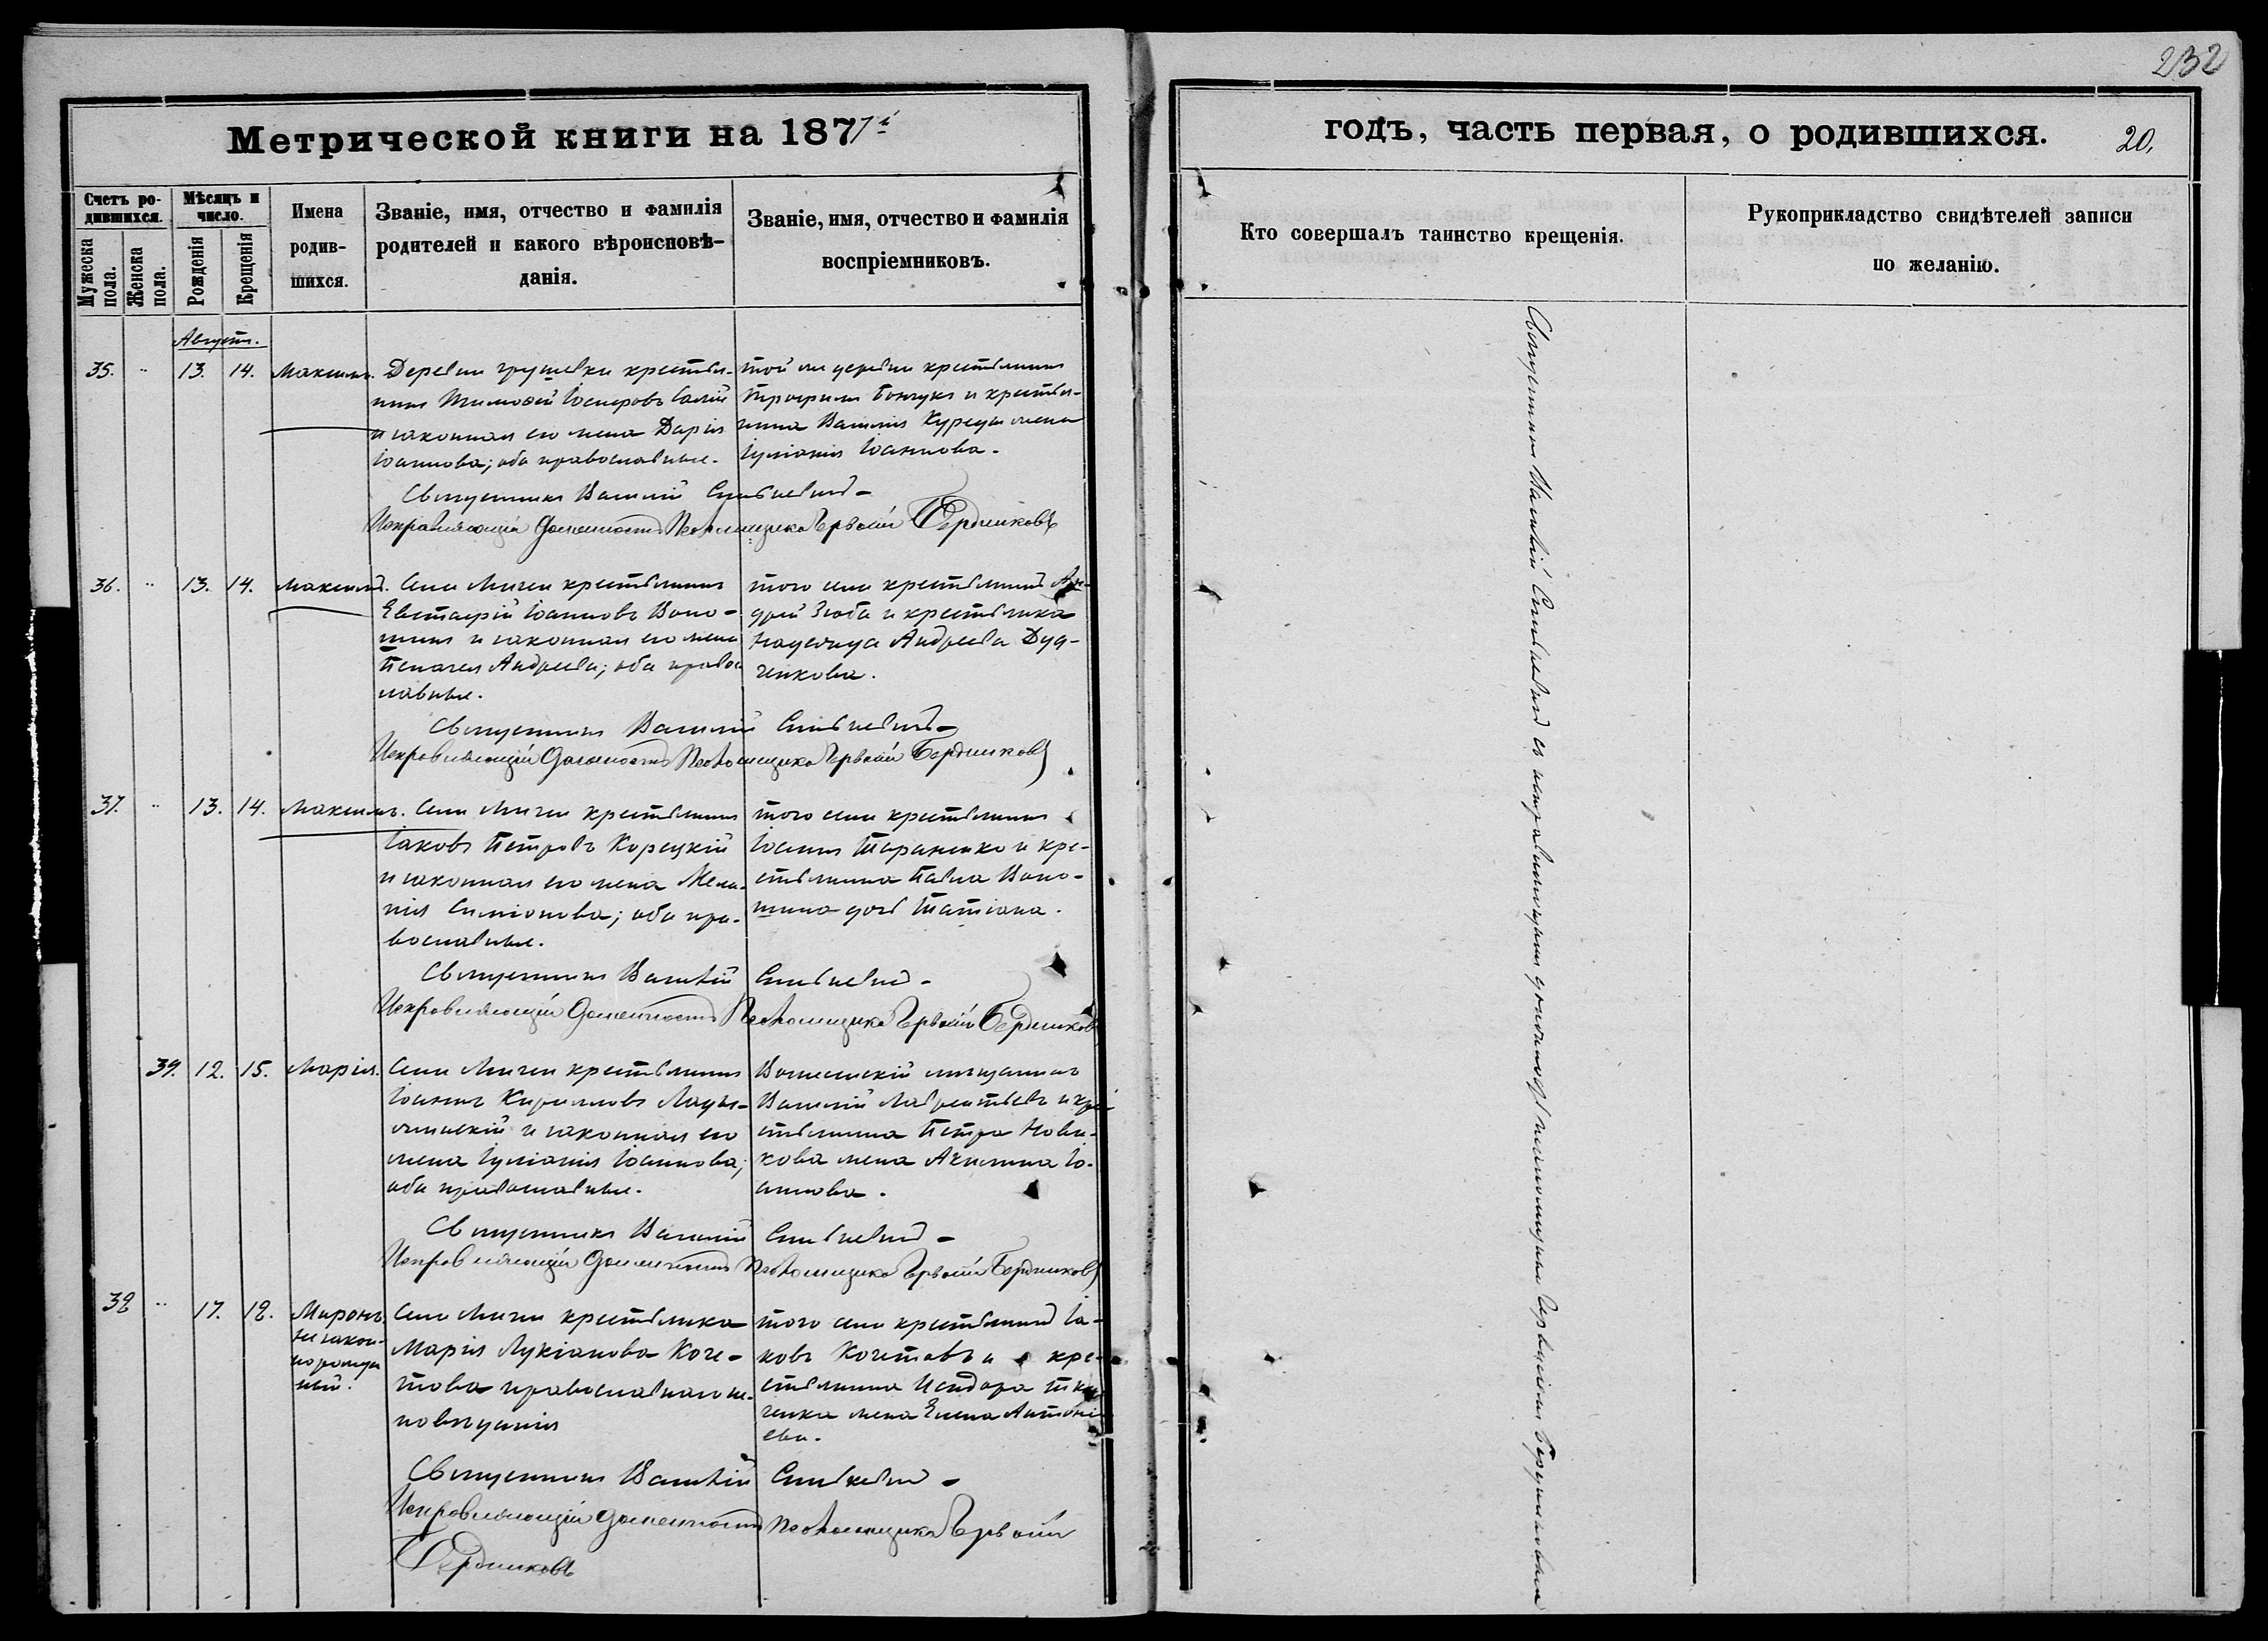 232
Метрической книги на 1877й
годъ, часть первая, о родившихся.
20.
Счетъ ро-
дившихся.
Мужеска
пола.
Женска
пола.
Мѣсяцъ и
число.
Рожденія
Крещенія
Имена
родив-
шихся.
Званіе, имя, отчество и фамилія
родителей и какого вѣроисповѣ-
данія.
Званіе, имя, отчество и фамилія
воспріемниковъ.
Кто совершалъ таинство крещенія.
Рукоприкладство свидѣтелей записи
по желанію.
Августъ.
35. " 13. 14. Максимъ.
Деревни Грушевки крестья-
нинъ Тимоѳей Іосифовъ
и законная его жена Дарія
Іоаннова; оба православные.
той же деревни крестьянинъ
Трофимъ и крестья-
нина Василія жена
Іуліанія Іоаннова.
Священникъ Василій
Исправляющій должность Псаломщика Бердниковъ
36. " 13. 14. Максимъ.
Села крестьянинъ
Евстафій Іоанновъ Воло-
шинъ и законная его жена
Пелагея Андреева; оба правос
лавные.
того села крестьянинъ Ан-
дрей Зюба и крестьянка
Надежда Андреева Дуд-
ченкова.
Священникъ Василій
Исправляющій должность Псаломщика Бердниковъ
37. " 13. 14. Максимъ.
Села крестьянинъ
Іаковъ Петровъ Корецкій
и законная его жена Мела-
нія Симіонова; оба пра-
вославные.
того села крестьянинъ
Іоаннъ Тараненко и кре-
стьянина Павла Воло-
шина дочь Татіана.
Священникъ Василій
Исправляющій должность Псаломщика Бердниковъ
39. 12. 15. Марія.
Села крестьянинъ
Іоаннъ Кирилловъ Лады-
жинскій и законная его
жена Іуліанія Іоаннова;
оба православные.
мѣщанинъ
Василій Лаврентьевъ и кре-
стьянина Петра Нови-
кова жена Акилина Іо-
аннова.
Священникъ Василій
Исправляющій должность Псаломщика Бердниковъ
38 " 17. 18. Миронъ,
незакон-
норожден
ный.
Села крестьянка
Марія Лукіанова Коче-
това православнаго ис-
повѣданія
того села крестьянинъ Іа-
ковъ Кочетовъ и кре-
стьянина Исидора Тка-
ченка жена Елена Антоні-
ева.
Священникъ Василій
Исправляющій должность Псаломщика
Бердниковъ
Священникъ Василій съ исправляющимъ должность псаломщика Бердниковымъ